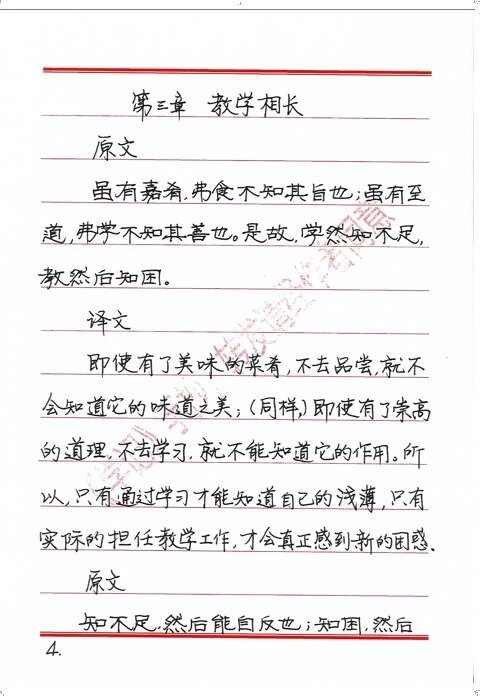 第三章 教学相长
原文
虽有嘉肴,弗食不知其旨也;虽有至
道,弗学不知其善也。是故,学然知不足,
教然后知困。
译文
即使有了美味的菜肴,不去品尝,就不
会知道它的味道之美;(同样,)即使有了崇高
的道理,不去学习,就不能知道它的作用。所
以,只有通过学习才能知道自己的浅薄,只有
实际的担任教学工作,才会真正感到新的困惑.
原文
知不足,然后能自反也;知困,然后
4.